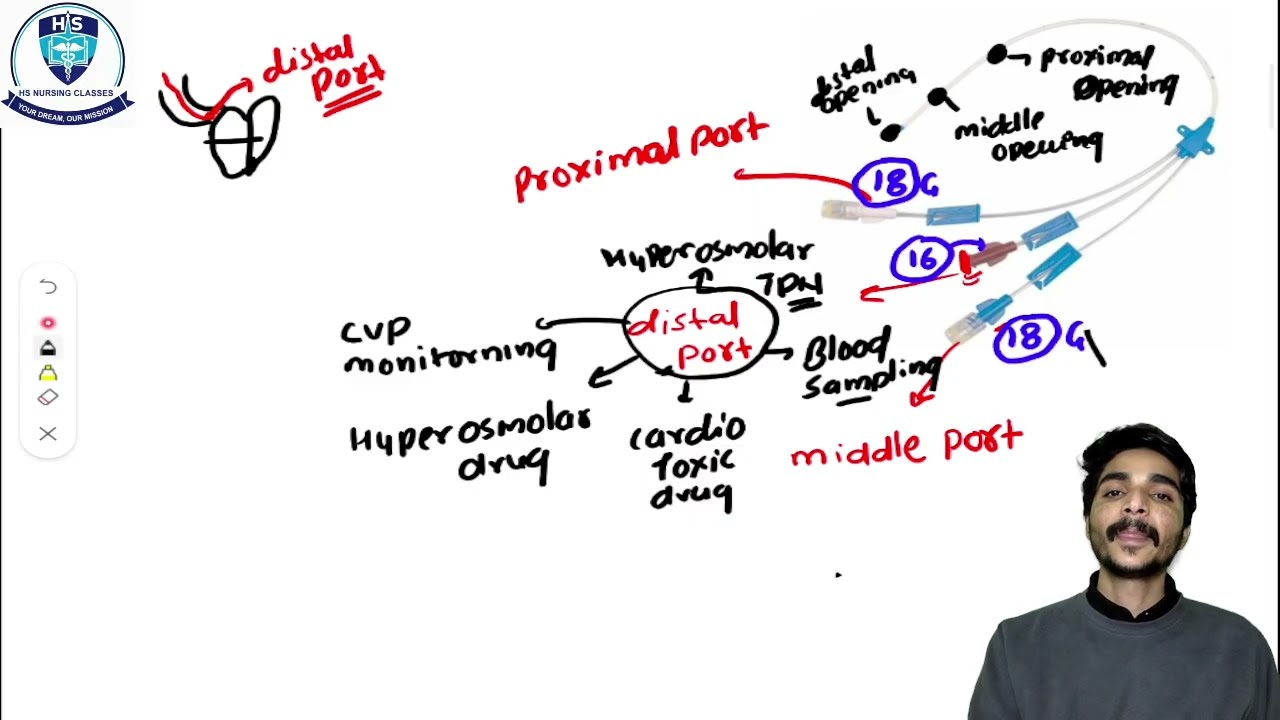 HS
HS NURSING CLASSES
YOUR DREAM, OUR MISSION
distal
port
distal
opening
proximal
opening
middle
opening
proximal port
18 G
16
18 G
Hyperosmolar
TPN
distal
port
CVP
monitorning
Blood
sampling
Hyperosmolar
drug
cardio
Toxic
drug
middle port